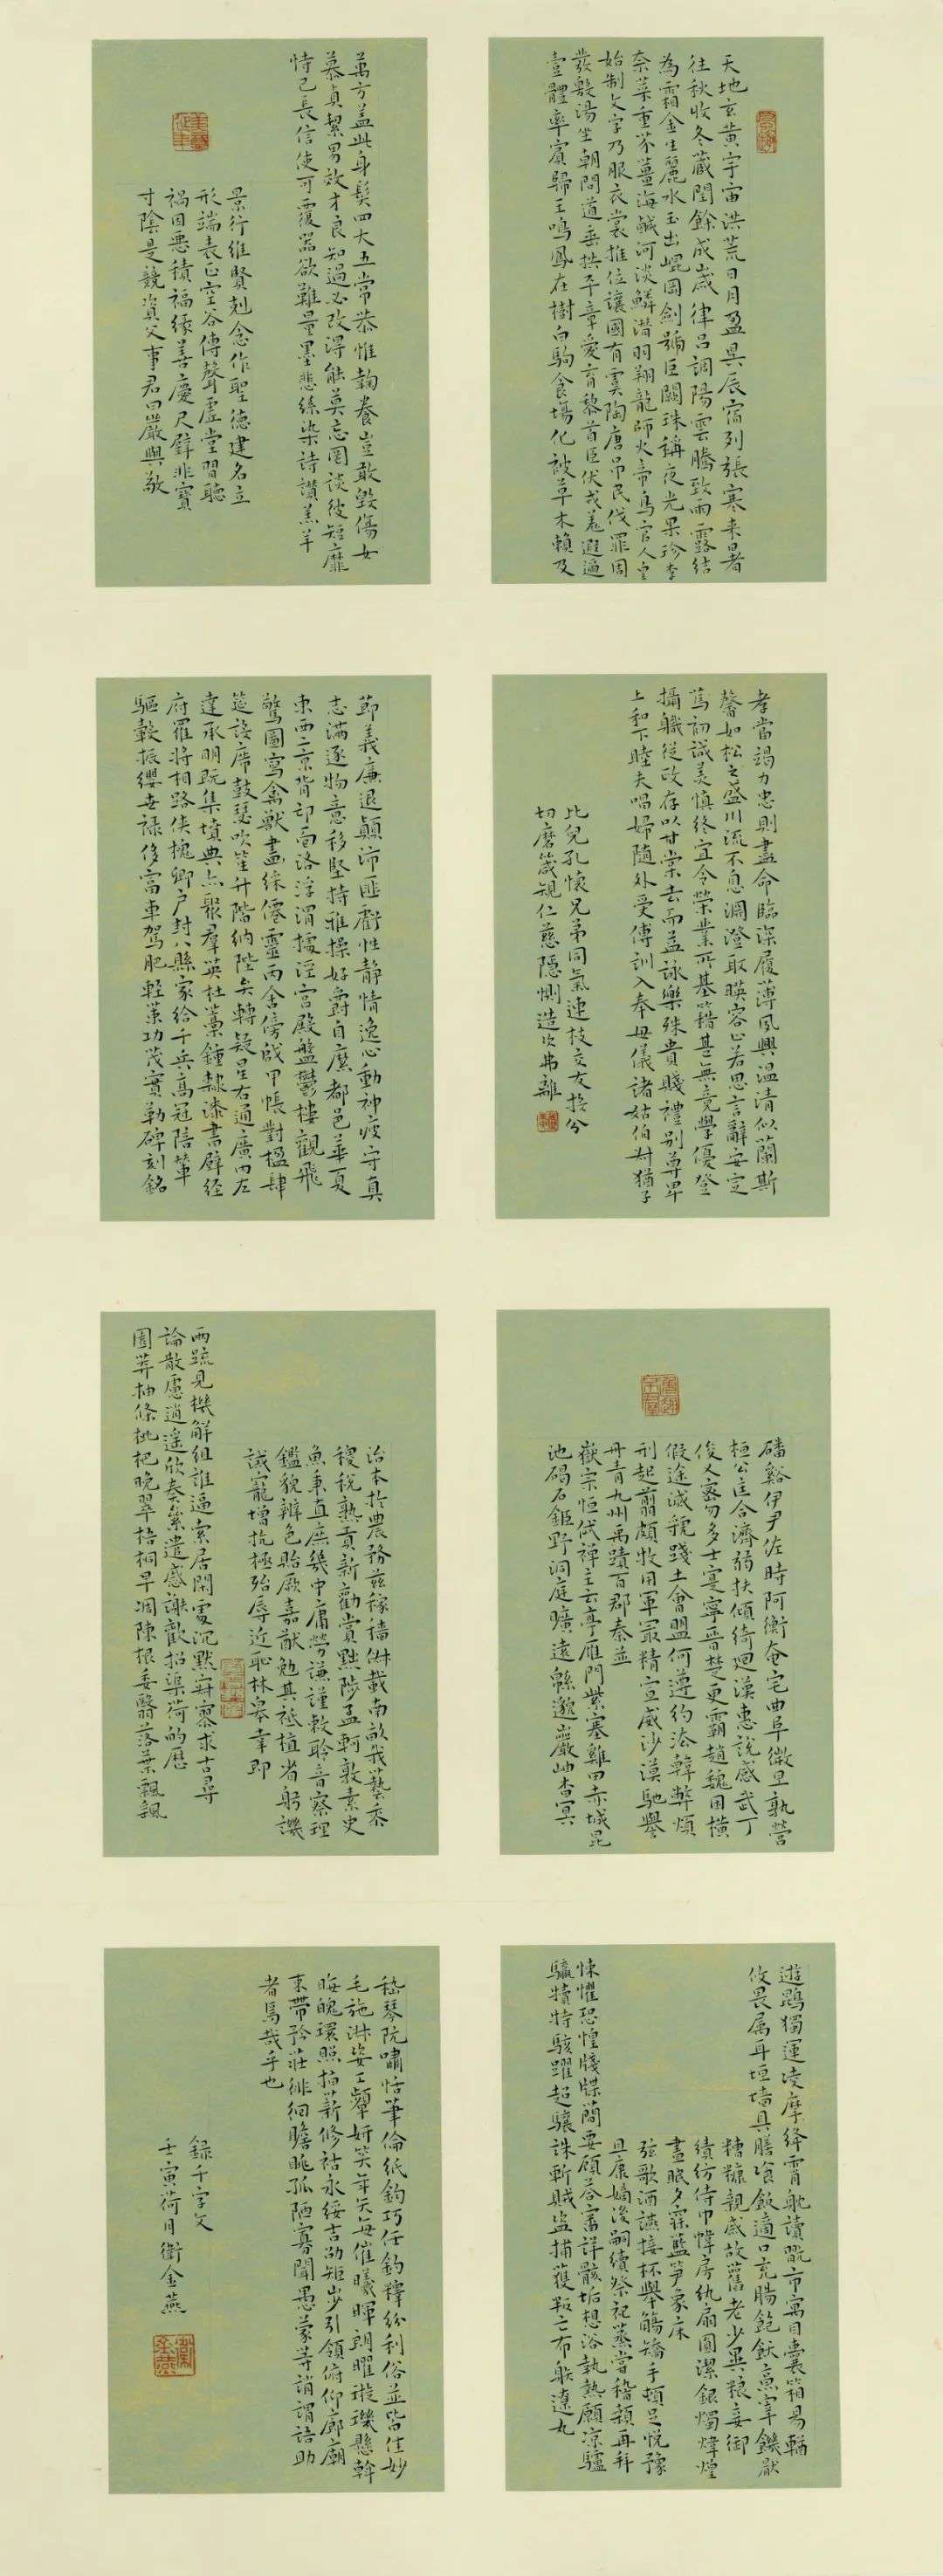 天地玄黃宇宙洪荒日月盈昃辰宿列張寒来暑
往秋收冬藏閏餘成歲律呂調陽雲騰致雨露結
為霜金生麗水玉出崐岡劍號巨闕珠稱夜光果珍李
柰菜重芥薑海鹹河淡鱗潛羽翔龍師火帝鳥官人皇
始制文字乃服衣裳推位讓國有虞陶唐弔民伐罪周
發殷湯坐朝問道垂拱平章愛育黎首臣伏戎羌遐邇
壹體率賓歸王鳴鳳在樹白駒食場化被草木賴及
萬方蓋此身髮四大五常恭惟鞠養豈敢毀傷女
慕貞絜男效才良知過必改得能莫忘罔談彼短靡
恃己長信使可覆器欲難量墨悲絲染詩讚羔羊
景行維賢剋念作聖德建名立
形端表正空谷傳聲虛堂習聽
禍因惡積福緣善慶尺璧非寶
寸陰是競資父事君曰嚴與敬
孝當竭力忠則盡命臨深履薄夙興溫凊似蘭斯
馨如松之盛川流不息淵澄取暎容止若思言辭安定
篤初誠美慎終宜令榮業所基籍甚無竟學優登
攝職從政存以甘棠去而益詠樂殊貴賤禮別尊卑
上和下睦夫唱婦隨外受傅訓入奉母儀諸姑伯叔猶子
比兒孔懷兄弟同氣連枝交友投分
切磨箴規仁慈隱惻造次弗離
節義廉退顛沛匪虧性靜情逸心動神疲守真
志滿逐物意移堅持雅操好爵自縻都邑華夏
東西二京背邙面洛浮渭據涇宮殿盤鬱樓觀飛
驚圖寫禽獸畫綵僊靈丙舍傍啟甲帳對楹肆
筵設席鼓瑟吹笙升階納陛弁轉疑星右通廣內左
達承明既集墳典亦聚羣英杜藁鍾隸漆書壁經
府羅將相路俠槐卿戶封八縣家給千兵高冠陪輦
驅轂振纓世祿侈富車駕肥輕策功茂實勒碑刻銘
磻谿伊尹佐時阿衡奄宅曲阜微旦孰營
桓公匡合濟弱扶傾綺迴漢惠說感武丁
俊乂密勿多士寔寧晉楚更霸趙魏困橫
假途滅虢踐土會盟何遵約法韓弊煩
刑起翦頗牧用軍最精宣威沙漠馳譽
丹青九州禹蹟百郡秦並
嶽宗恒岱禪主云亭雁門紫塞雞田赤城昆
池碣石鉅野洞庭曠遠緜邈巖岫杳冥
治本於農務茲稼穡俶載南畝我藝黍
稷稅熟貢新勸賞黜陟孟軻敦素史
魚秉直庶幾中庸勞謙謹敕聆音察理
鑑貌辨色貽厥嘉猷勉其祗植省躬譏
誡寵增抗極殆辱近恥林皋幸即
兩疏見機解組誰逼索居閑處沉默寂寥求古尋
論散慮逍遙欣奏累遣慼謝歡招渠荷的歷
園莽抽條枇杷晚翠梧桐早凋陳根委翳落葉飄颻
遊鵾獨運凌摩絳霄耽讀翫市寓目囊箱易輶
攸畏屬耳垣墻具膳飡飯適口充腸飽飫烹宰饑厭
糟糠親戚故舊老少異糧妾御
績紡侍巾帷房紈扇圓潔銀燭煒煌
晝眠夕寐藍笋象床
弦歌酒讌接杯舉觴矯手頓足悅豫
且康嫡後嗣續祭祀蒸嘗稽顙再拜
悚懼恐惶牋牒簡要顧答審詳骸垢想浴執熱願涼驢
騾犢特駭躍超驤誅斬賊盜捕獲叛亡布射遼丸
嵇琴阮嘯恬筆倫紙鈞巧任釣釋紛利俗並皆佳妙
毛施淑姿工顰妍笑年矢每催曦暉朗曜璇璣懸斡
晦魄環照指薪修祜永綏吉劭矩步引領俯仰廊廟
束帶矜莊徘徊瞻眺孤陋寡聞愚蒙等誚謂語助
者焉哉乎也
錄千字文
壬寅荷月衛金燕